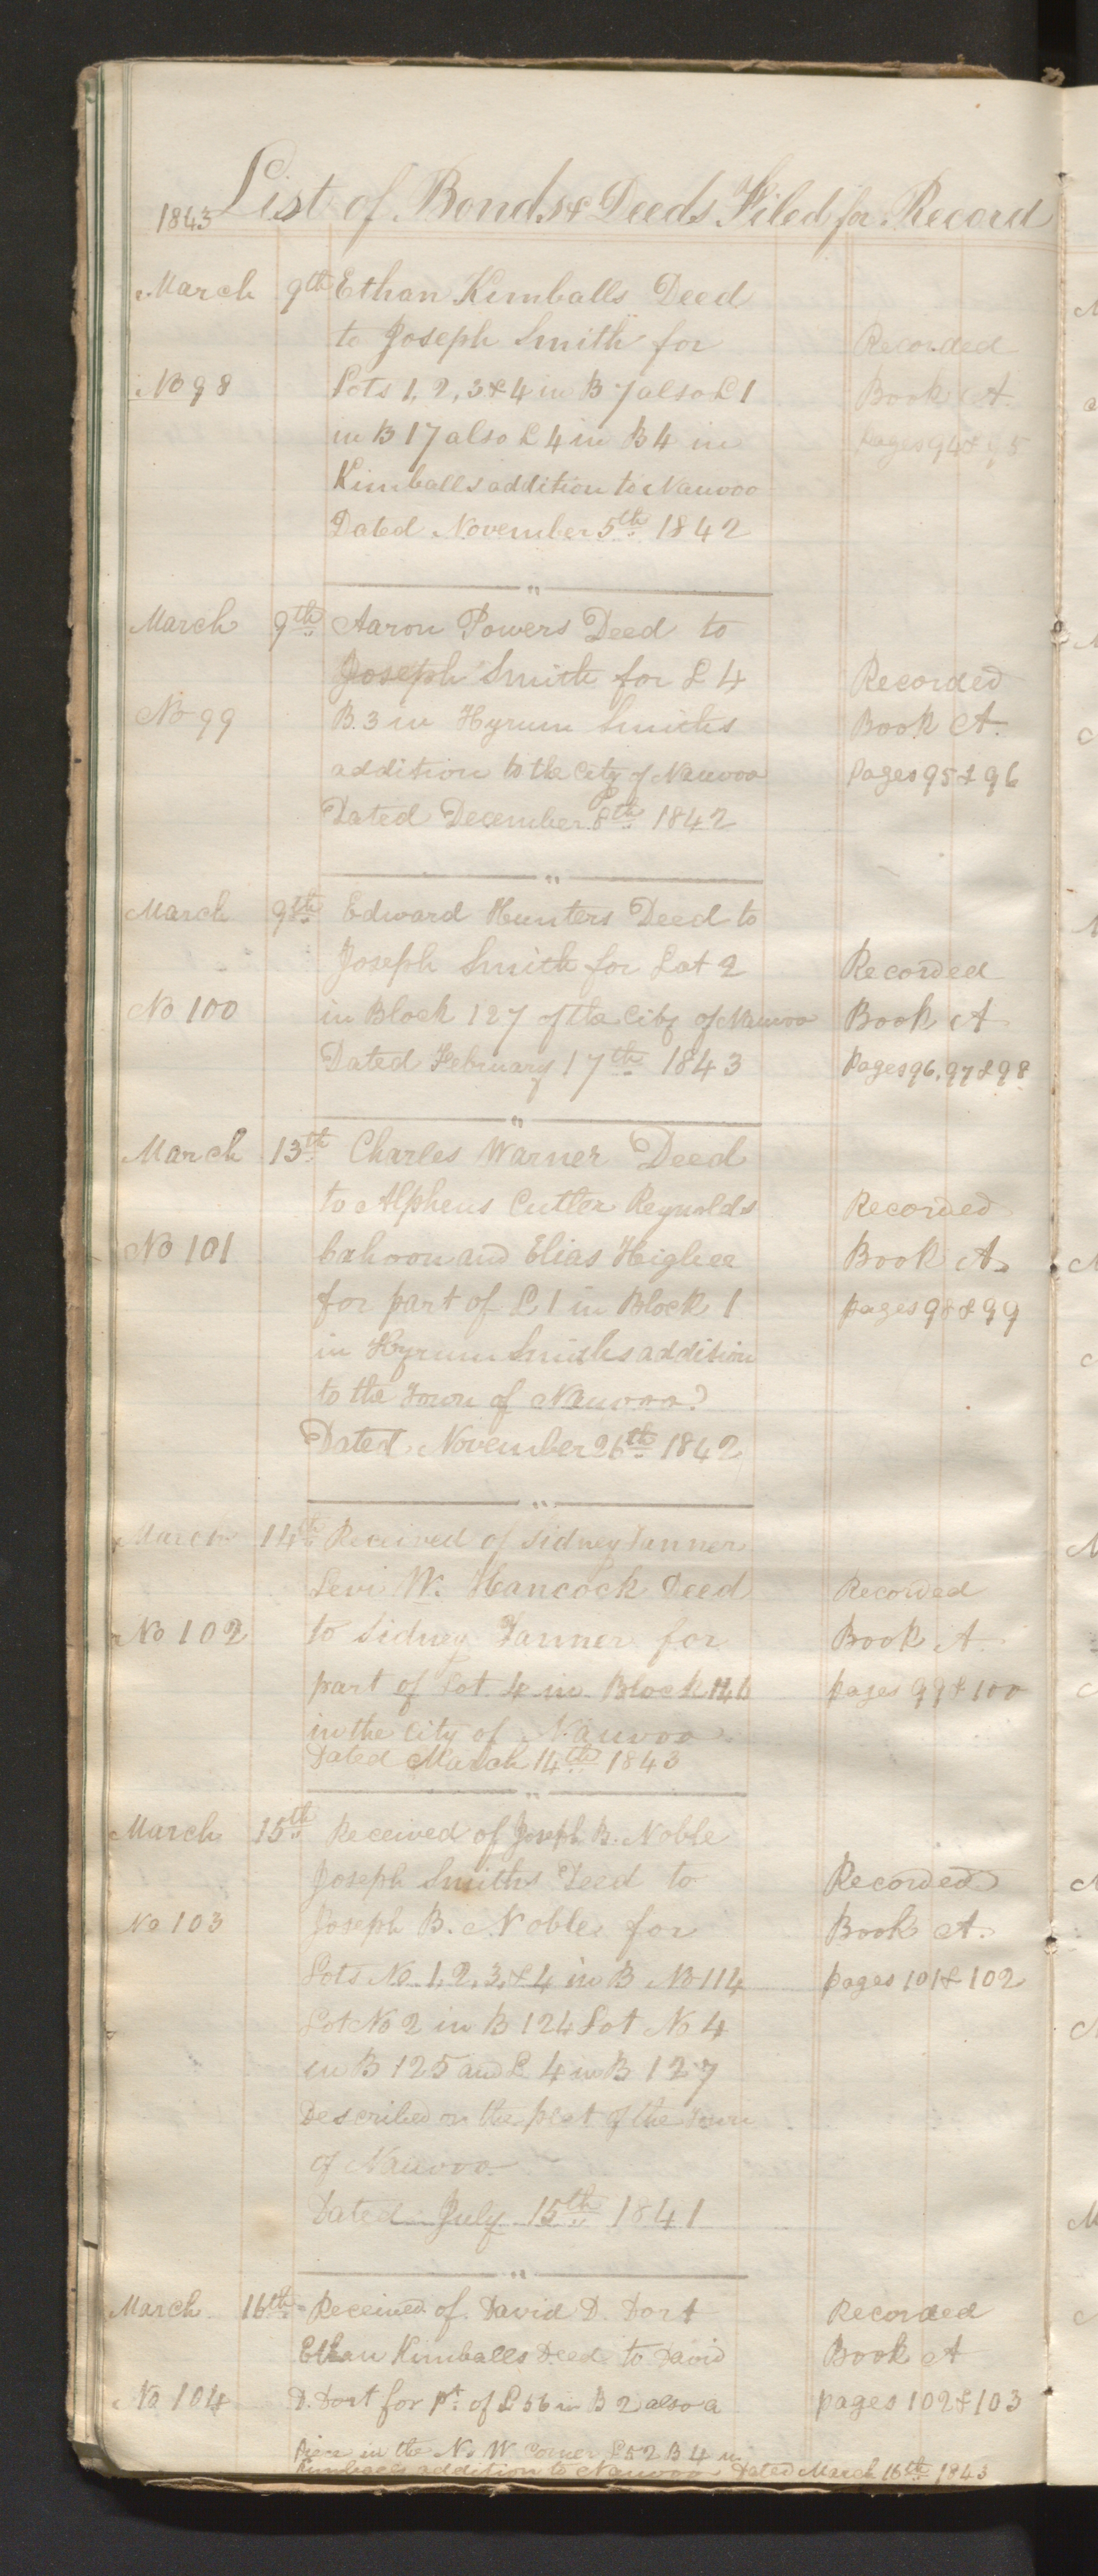 1843 List of Bonds & Deeds Filed for Record
March 9th Ethan Kimballs Deed
to Joseph Smith for Recorded
No 98 Lots 1, 2, 3 & 4 in B 7 also L 1 Book A.
in B 17 also L 4 in B 4 in pages 94 & 95
Kimballs addition to Nauvoo
Dated November 5th 1842
March 9th Aaron Powers Deed to
Joseph Smith for L 4 Recorded
No 99 B. 3 in Hyrum Smiths Book A.
addition to the City of Nauvoo pages 95 & 96
Dated December 8th 1842
March 9th Edward Hunters Deed to
Joseph Smith for Lot 2 Recorded
No 100 in Block 127 of the City of Nauvoo Book A
Dated February 17th 1843 pages 96, 97 & 98
March 13th Charles Warner Deed
to Alpheus Cutler Reynolds Recorded
No 101 Cahoon and Elias Higbee Book A.
for part of L 1 in Block 1 pages 98 & 99
in Hyrum Smiths addition
to the Town of Nauvoo
Dated November 26th 1842
March 14th Received of Sidney Tanner
Levi W. Hancock Deed Recorded
No 102 to Sidney Tanner for Book A
part of Lot 4 in Block 146 pages 99 & 100
in the City of Nauvoo
Dated March 14th 1843
March 15th Received of Joseph B. Noble
Joseph Smiths Deed to Recorded
No 103 Joseph B. Noble for Book A.
Lots No. 1, 2, 3, & 4 in B No 114 pages 101 & 102
Lot No 2 in B 124 Lot No 4
in B 125 and L 4 in B 127
Described on the plat of the Town
of Nauvoo
Dated July 15th 1841
March 16th Received of David D. Dort Recorded
Ethan Kimballs Deed to David Book A
No 104 D. Dort for pt. of L 56 in B 2 also a pages 102 & 103
Piece in the N. W corner L 52 B 4 in
Kimballs addition to Nauvoo Dated March 16th 1843